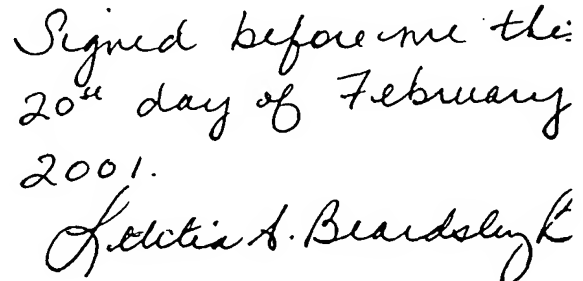 Signed before me this
20th day of February
2001.
Letitia A. Beardsley